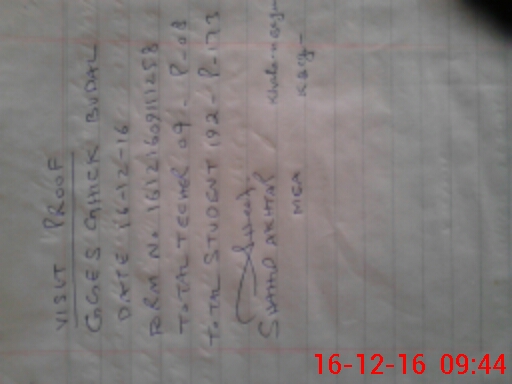 VISIT PROOF
GGES CHHEK BUDAL
DATE 16-12-16
FORM No 16121609111253
TOTAL TECHER 09 - P-08
TOTAL STUDENT 192 - P-173
SHAHID AKHTAR
MEA
16-12-16 09:44